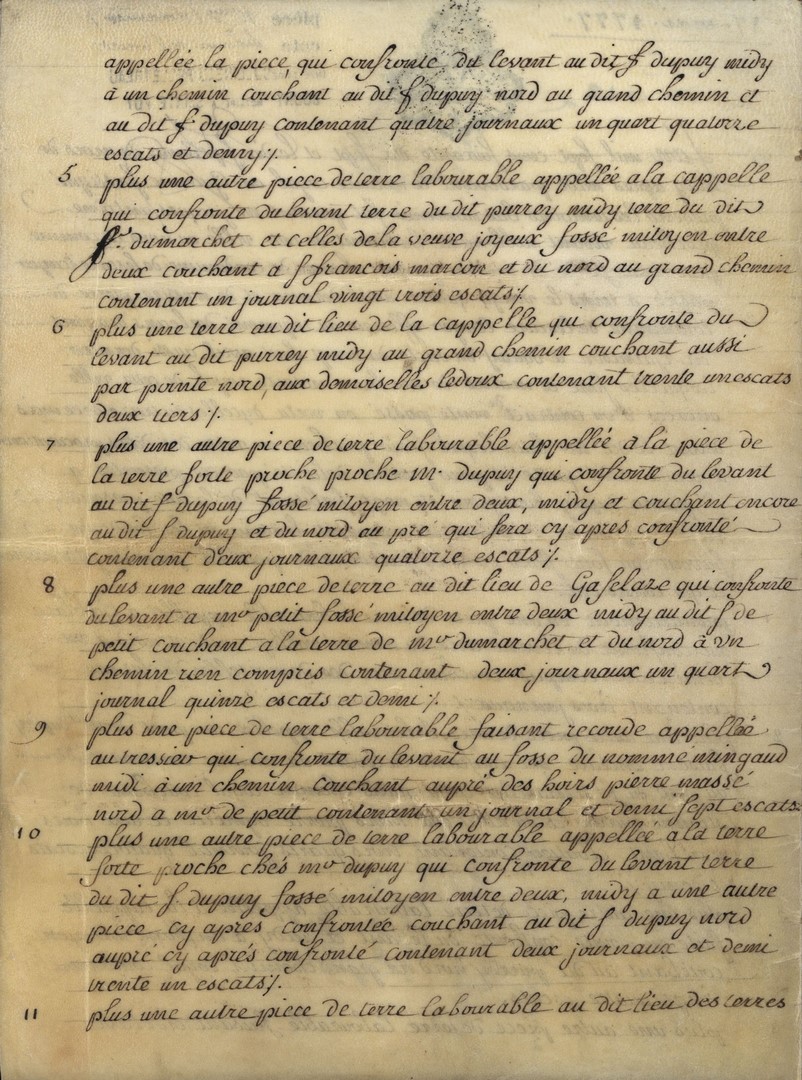 appellée la piece, qui confronte du levant au dit f dupuy midy
à un chemin couchant au dit f dupuy nord au grand chemin et
au dit f dupuy contenant quatre journaux un quart quatorze
escats et demy ⁒
5 plus une autre piece de terre labourable appellée a la cappelle
qui confronte du levant terre du dit purrey midy terre du dit
fr. dumarchet et celles de la veuve joyeux fossé mitoyen entre
deux couchant a f francois marcon et du nord au grand chemin
contenant un journal vingt trois escats ⁒
6 plus une terre au dit lieu de la cappelle qui confronte du
levant au dit purrey midy au grand chemin couchant aussi
par pointe nord, aux demoiselles ledoux contenant trente un escats
deux tiers ⁒
7 plus une autre piece de terre labourable appelleé à la piece de
la terre forte proche proche mr dupuy qui confronte du levant
au dit f dupuy fossé mitoyen entre deux, midy et couchant encore
au dit f dupuy et du nord au pré qui sera cy apres confronté
contenant deux journaux quatorze escats ⁒
8 plus une autre piece de terre au dit lieu de Gafelaze qui confronte
du levant a mr petit fossé mitoyen entre deux midy au dit f de
petit couchant a la terre de mr dumarchet et du nord à vn
chemin rien compris contenant deux journaux un quart
journal quinze escats et demi ⁒
9 plus une piece de terre labourable faisant recoude appelleé
au tressieu qui confronte du levant au fosse du nommé mingaud
midi à un chemin couchant aupré des hoirs pierre massé
nord a mr de petit contenant un journal et demi sept escats
10 plus une autre piece de terre labourable appelleé a la terre
forte proche chés mr dupuy qui confronte du levant terre
du dit f. dupuy fossé mitoyen entre deux, midy a une autre
piece cy aprés confrontée couchant au dit f dupuy nord
aupré cy aprés confronté contenant deux journaux et demi
trente un escats ⁒
11 plus une autre piece de terre labourable au dit lieu des terres